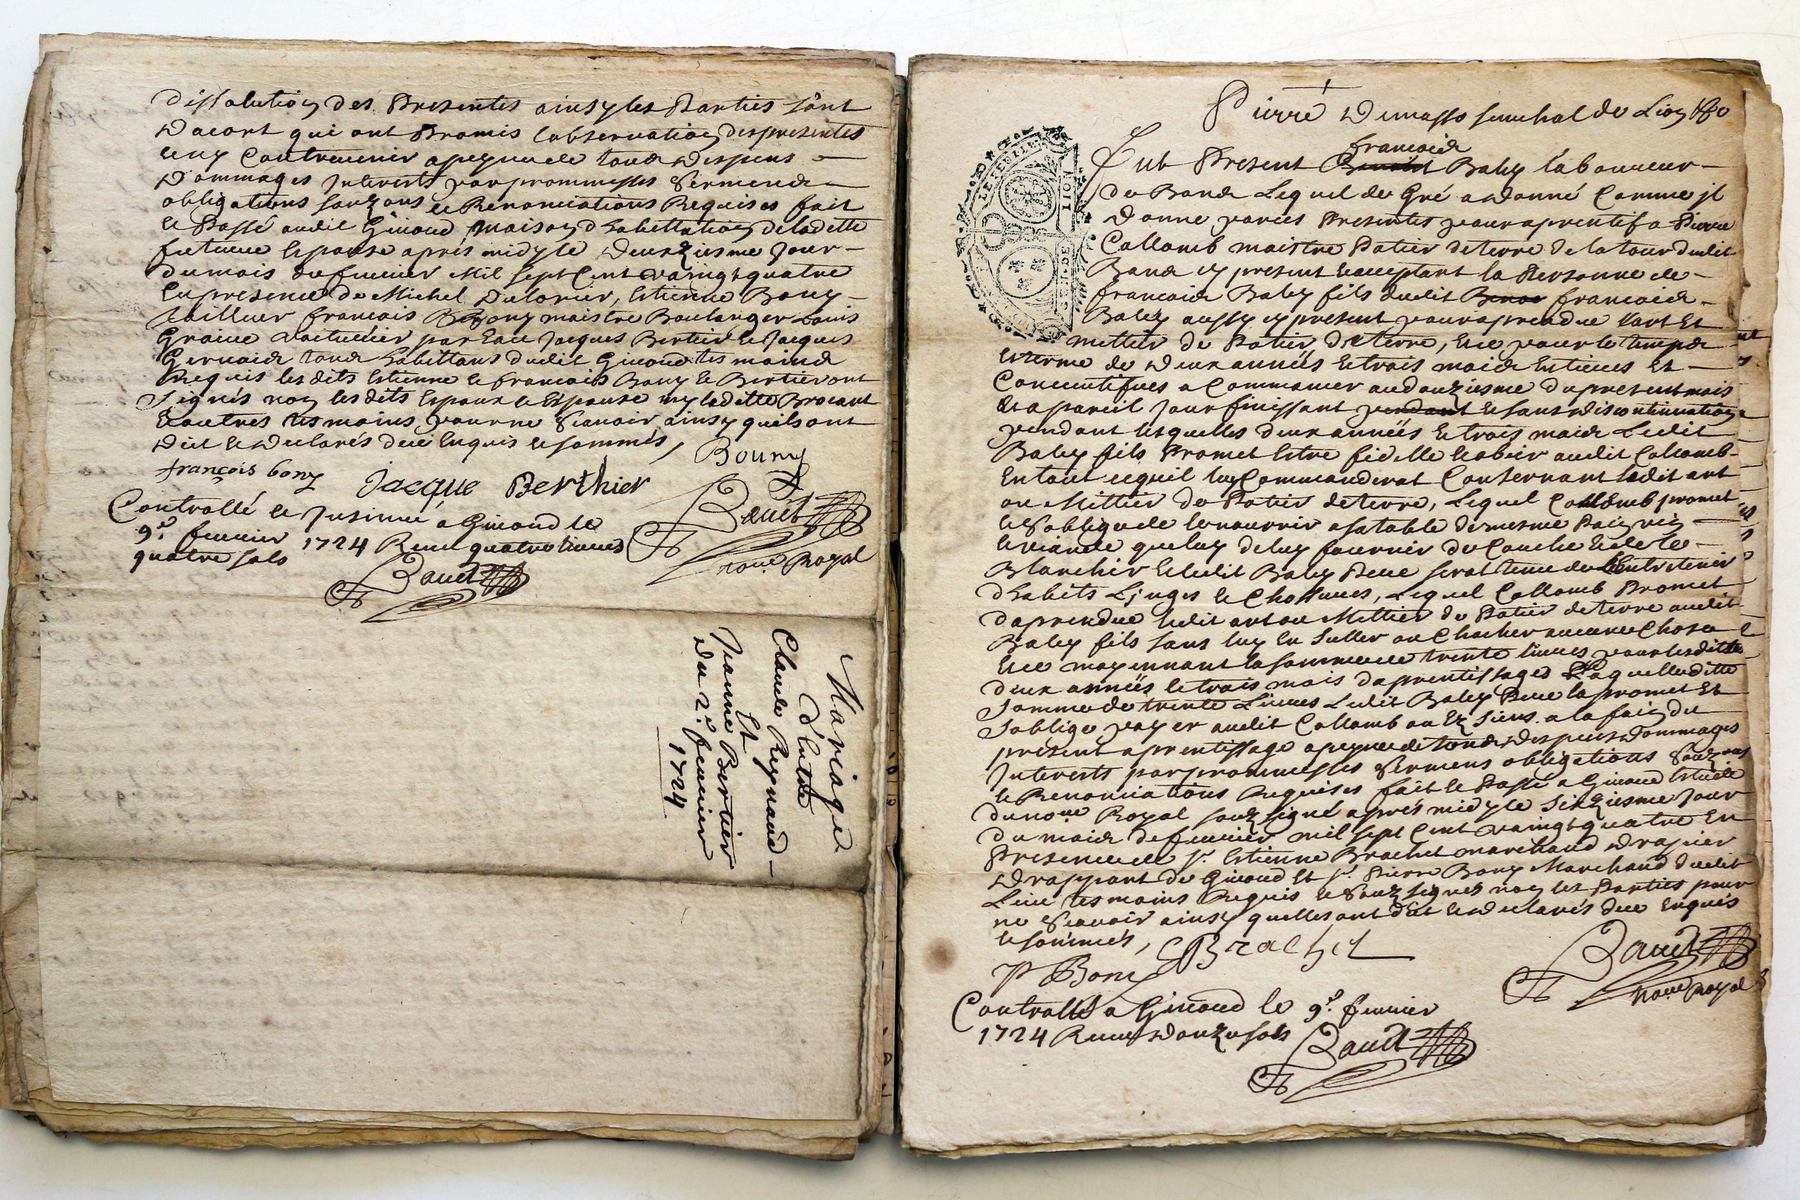 dissolution des presentes ainsy les Parties sont
dacort qui ont Promis lobservation des presentes
a peyne de tous despens
Dommages Interests par prommesses serment
obligations Renonciations Requises fait
et Passé audit Giuoud maison dhabittation de laditte
future espouse aprés midy le deuxziesme Jour
du mois de feurier Mil sept Cent vaingt quatre
En presence de Michel Estienne Bony
francois Bony maistre Boulanger
Jacques Bertier et Jacques
tous habittans dudit Giuoud tesmoins
Requis lesdits Estienne et francois Bony et Bertier ont
signés non lesdits Espoux et Espouse ny laditte Brocant
et autres tesmoins pour ne scavoir ainsy quils ont
dit et declarés de ce Enquis et sommés,
Bouny
françois bony Jacque Berthier
Controllé et Jnsinué a Giuoud le
9e. feurier 1724 Receu quatre liures
quatre sols
Baudt
no.re Royal
Baudt
Mariage
d'Entre
Claude Reynaud
Et
Jeanne Bertier
du 2e. feurier
1724
Pierre Demasso senechal de Lion
francois
fut Present Benoit Baley laboureur
de Bans Lequel de Gré a donné Comme Jl
donne par ces Presentes pour aprentif a Pierre
Collomb maistre Potier de terre de la tour dudit
Bans cy present et acceptant la Personne de
francois Baley fils dudit francois
Baley aussy cy present pour aprendre lart Et
mettier de Potier de terre, et ce pour le temps
et terme de deux années et trois mois Entieres Et
Consecutifues a Commancer au douziesme du present mois
Et a pareil Jour finissant pendant et sans discontinuation
pendant lesquelles deux années et trois mois Ledit
Baley fils Promet Estre fidelle et obeir audit Collomb
En tout ce quil luy Commanderat Consernant ledit art
ou Mettier de Potier de terre, Lequel Collomb promet
et soblige de le nourrir a sa table de mesme Pain vin
et viande que luy de luy fournir de Couche et de le
Blanchir et ledit Baley Pere serat tenu de lentretenir
dhabits Linges et Chossures, Lequel Collomb Promet
daprendre ledit art ou Mettier de Potier de terre audit
Baley fils sans luy En Celler ou Chacher aucune Chose
Et ce moyennant la somme de trente liures pour lesdittes
deux années et trois mois daprentissages Laquelle ditte
somme de trente Liures Ledit Baley Pere la promet Et
soblige payer audit Collomb ou Ez siens a la fin du
present aprentissage a peyne de tous despens dommages
Interests par prommesses sermens obligations
et Renonciations Requises fait et Passé a Giuoud Estude
du no.re Royal souzsigné aprés midy le sixziesme Jour
du mois de feurier mil sept Cent vaingt quatre En
Presence de sr. Estienne Brachet marchand drapier
drappant de Giuoud Et sr. Pierre Bony Marchand dudit
Lieu tesmoins Requis et souzsignés non les Parties pour
ne scavoir ainsy quelles ont dit et declarés de ce Enquis
et sommés,
EBrachet
P Bony
Baudt
no.re royal
Controllé a Giuoud le 9e. feurier
1724 Receu douze sols
Baudt